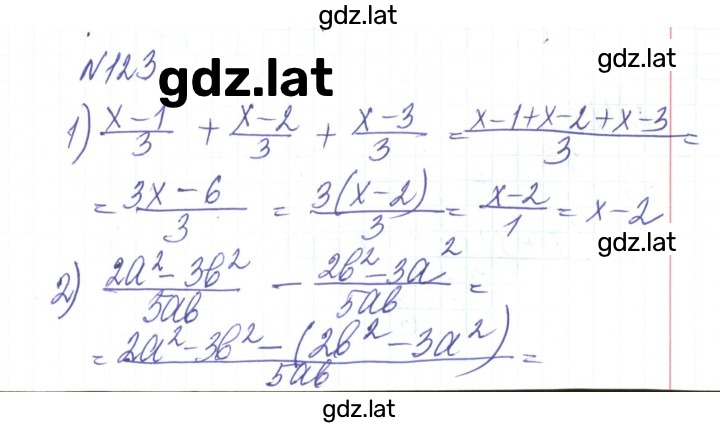 gdz.lat
gdz.lat
№123
gdz.lat
1) (x-1)/3 + (x-2)/3 + (x-3)/3 = (x-1+x-2+x-3)/3 =
= (3x-6)/3 = (3(x-2))/3 = (x-2)/1 = x-2
gdz.lat
2) (2a²-3b²)/5ab - (2b²-3a²)/5ab =
= (2a²-3b²-(2b²-3a²))/5ab =
gdz.lat